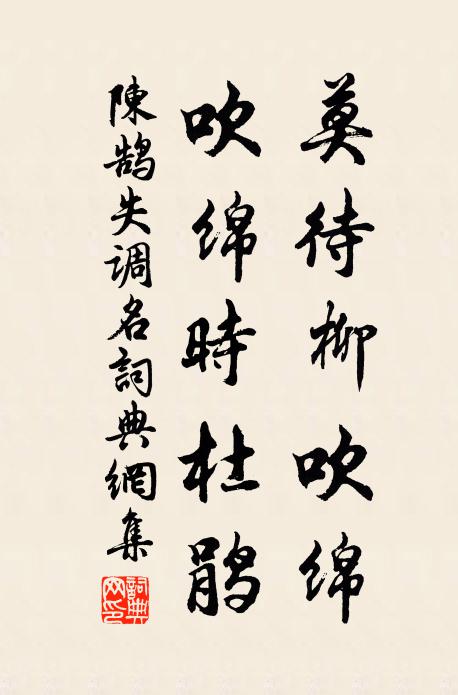 莫待柳吹绵
吹绵時杜鹃
陳鹄失调名詞典網集
詞典网印